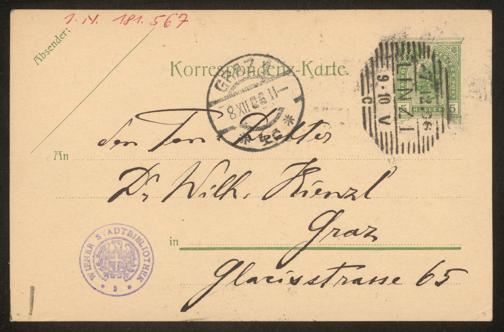 I.N. 181.567
Absender:
Korrespondenz-Karte.
GRAZ 1
8 XII 06 11-
LINZ 1
7 12 06
9·10 V
C
5
An
den Ton Dichter
Dr Wilh. Kienzl
in Graz
Glacisstrasse 65
WIENER STADTBIBLIOTHEK